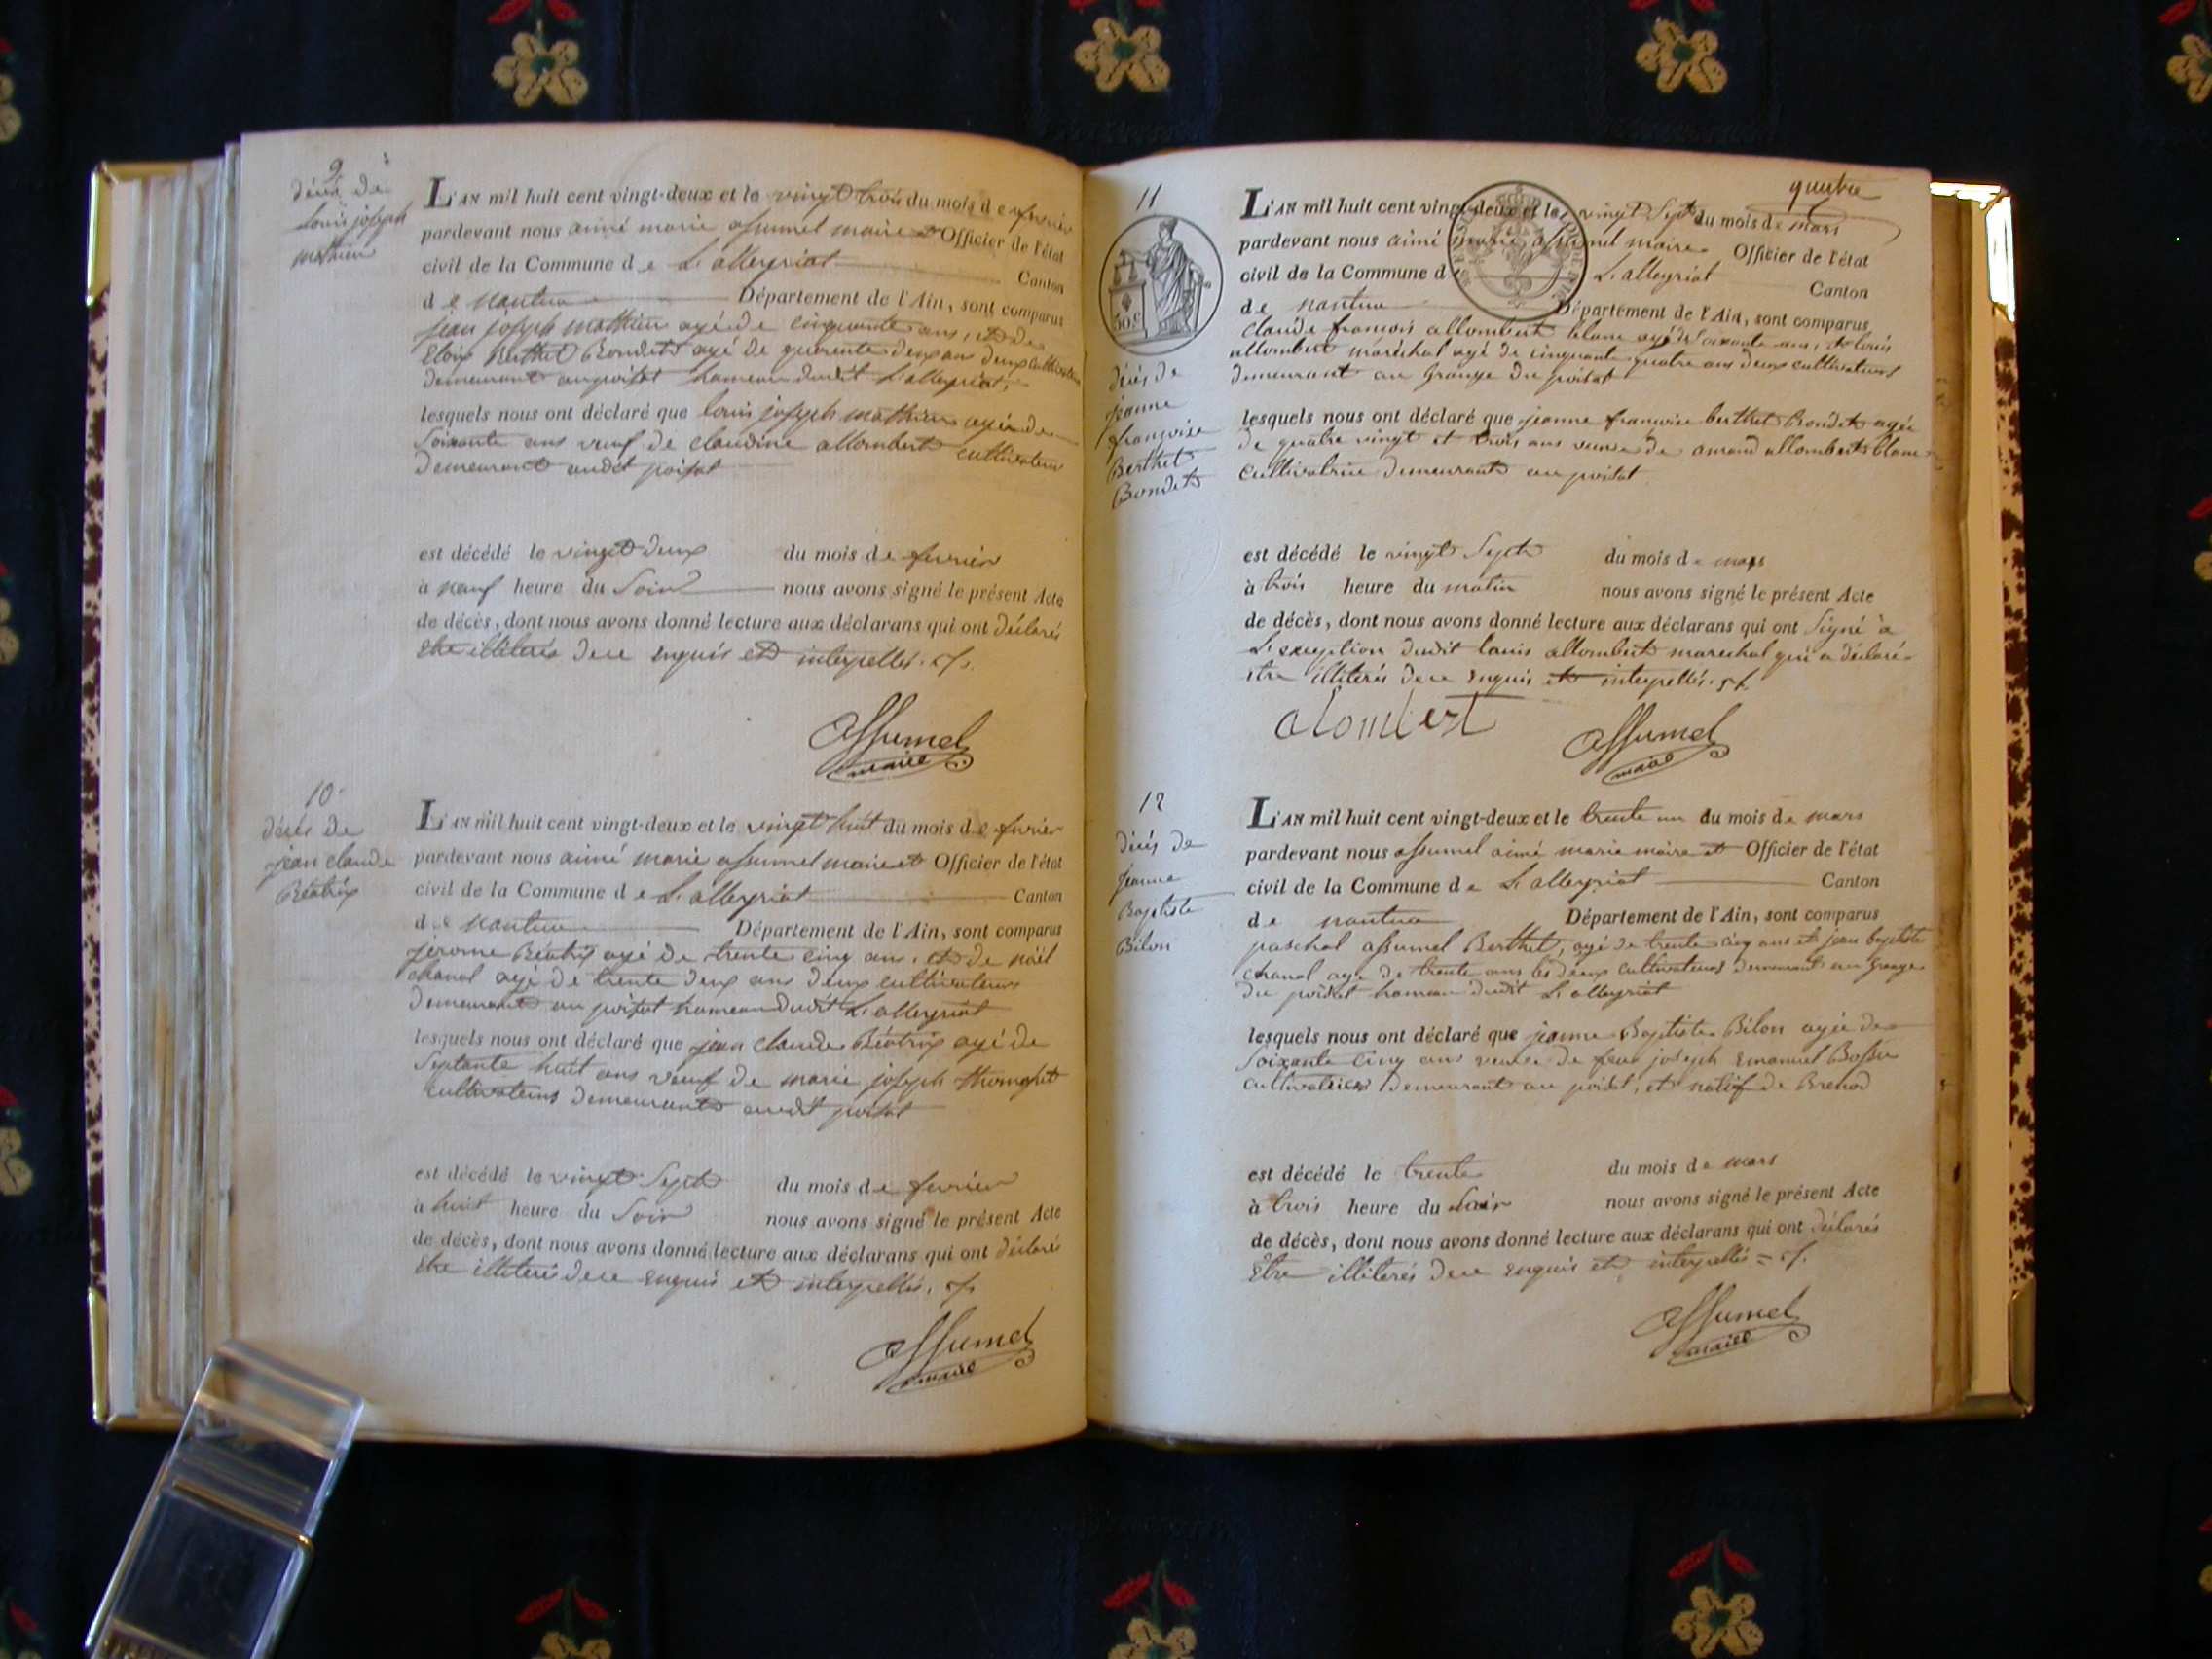 9
décès de
louis joseph
mathieu
L'AN mil huit cent vingt-deux et le vingt trois du mois de fevrier
pardevant nous aimé marie assumel maire et Officier de l'état
civil de la Commune de L'alleyriat Canton
de nantua Département de l'Ain, sont comparus
jean joseph mathieu agé de cinquante ans, et de
Eloix Berthet Bondet agé de quarente deux ans deux cultivateurs
demeurant au poisat hameau dudit L'alleyriat,
lesquels nous ont déclaré que louis joseph mathieu agé de
soixante ans veuf de claudine allombert cultivateur
demeurant audit poisat
est décédé le vingt deux du mois de fevrier
à neuf heure du soir nous avons signé le présent Acte
de décès, dont nous avons donné lecture aux déclarans qui ont déclarés
etre illiterés de ce enquis et interpellés.
assumel
maire
10
décès de
jean claude
Béatrix
L'AN mil huit cent vingt-deux et le vingt huit du mois de fevrier
pardevant nous aimé marie assumel maire et Officier de l'état
civil de la Commune de L'alleyriat Canton
de nantua Département de l'Ain, sont comparus
jerome Béatrix agé de trente cinq ans, et de noël
chanal agé de trente deux ans deux cultivateurs
demeurant au poisat hameau dudit L'alleyriat
lesquels nous ont déclaré que jean claude Béatrix agé de
septante huit ans veuf de marie joseph thomasset
cultivateurs demeurant audit poisat
est décédé le vingt sept du mois de fevrier
à huit heure du soir nous avons signé le présent Acte
de décès, dont nous avons donné lecture aux déclarans qui ont déclaré
etre illiteré de ce enquis et interpellés.
assumel
maire
quatre
11
50 c
L'AN mil huit cent vingt-deux et le vingt sept du mois de mars
pardevant nous aimé marie assumel maire Officier de l'état
civil de la Commune d L'alleyriat Canton
de nantua Département de l'Ain, sont comparus
claude françois allombert blanc agé de soixante ans, et louis
allombert maréchal agé de cinquante quatre ans deux cultivateurs
demeurant au Grange du poisat
décès de
jeanne
françoise
Berthet
Bondet
lesquels nous ont déclaré que jeanne françoise berthet Bondet agée
de quatre vingt et trois ans veuve de amand allombert blanc
cultivatrice demeurant au poisat
est décédé le vingt sept du mois de mars
à trois heure du matin nous avons signé le présent Acte
de décès, dont nous avons donné lecture aux déclarans qui ont signé à
L'exception dudit louis allombert marechal qui a déclaré
etre illiterés de ce enquis et interpellés.
alombert
assumel
maire
12
décès de
jeanne
Baptiste
Bilon
L'AN mil huit cent vingt-deux et le trente un du mois de mars
pardevant nous assumel aimé marie maire et Officier de l'état
civil de la Commune de L'alleyriat Canton
de nantua Département de l'Ain, sont comparus
paschal assumel Berthet, agé de trente cinq ans et jean baptiste
chanal agé de trente ans les deux cultivateurs demeurant au Grange
du poisat hameau dudit L'alleyriat
lesquels nous ont déclaré que jeanne Baptiste Bilon agée de
soixante cinq ans veuve de feu joseph Emanuel Bossu
cultivatrice demeurant au poisat, et natif de Brenod
est décédé le trente du mois de mars
à trois heure du soir nous avons signé le présent Acte
de décès, dont nous avons donné lecture aux déclarans qui ont déclarés
Etre illiterés de ce enquis et interpellés
assumel
maire